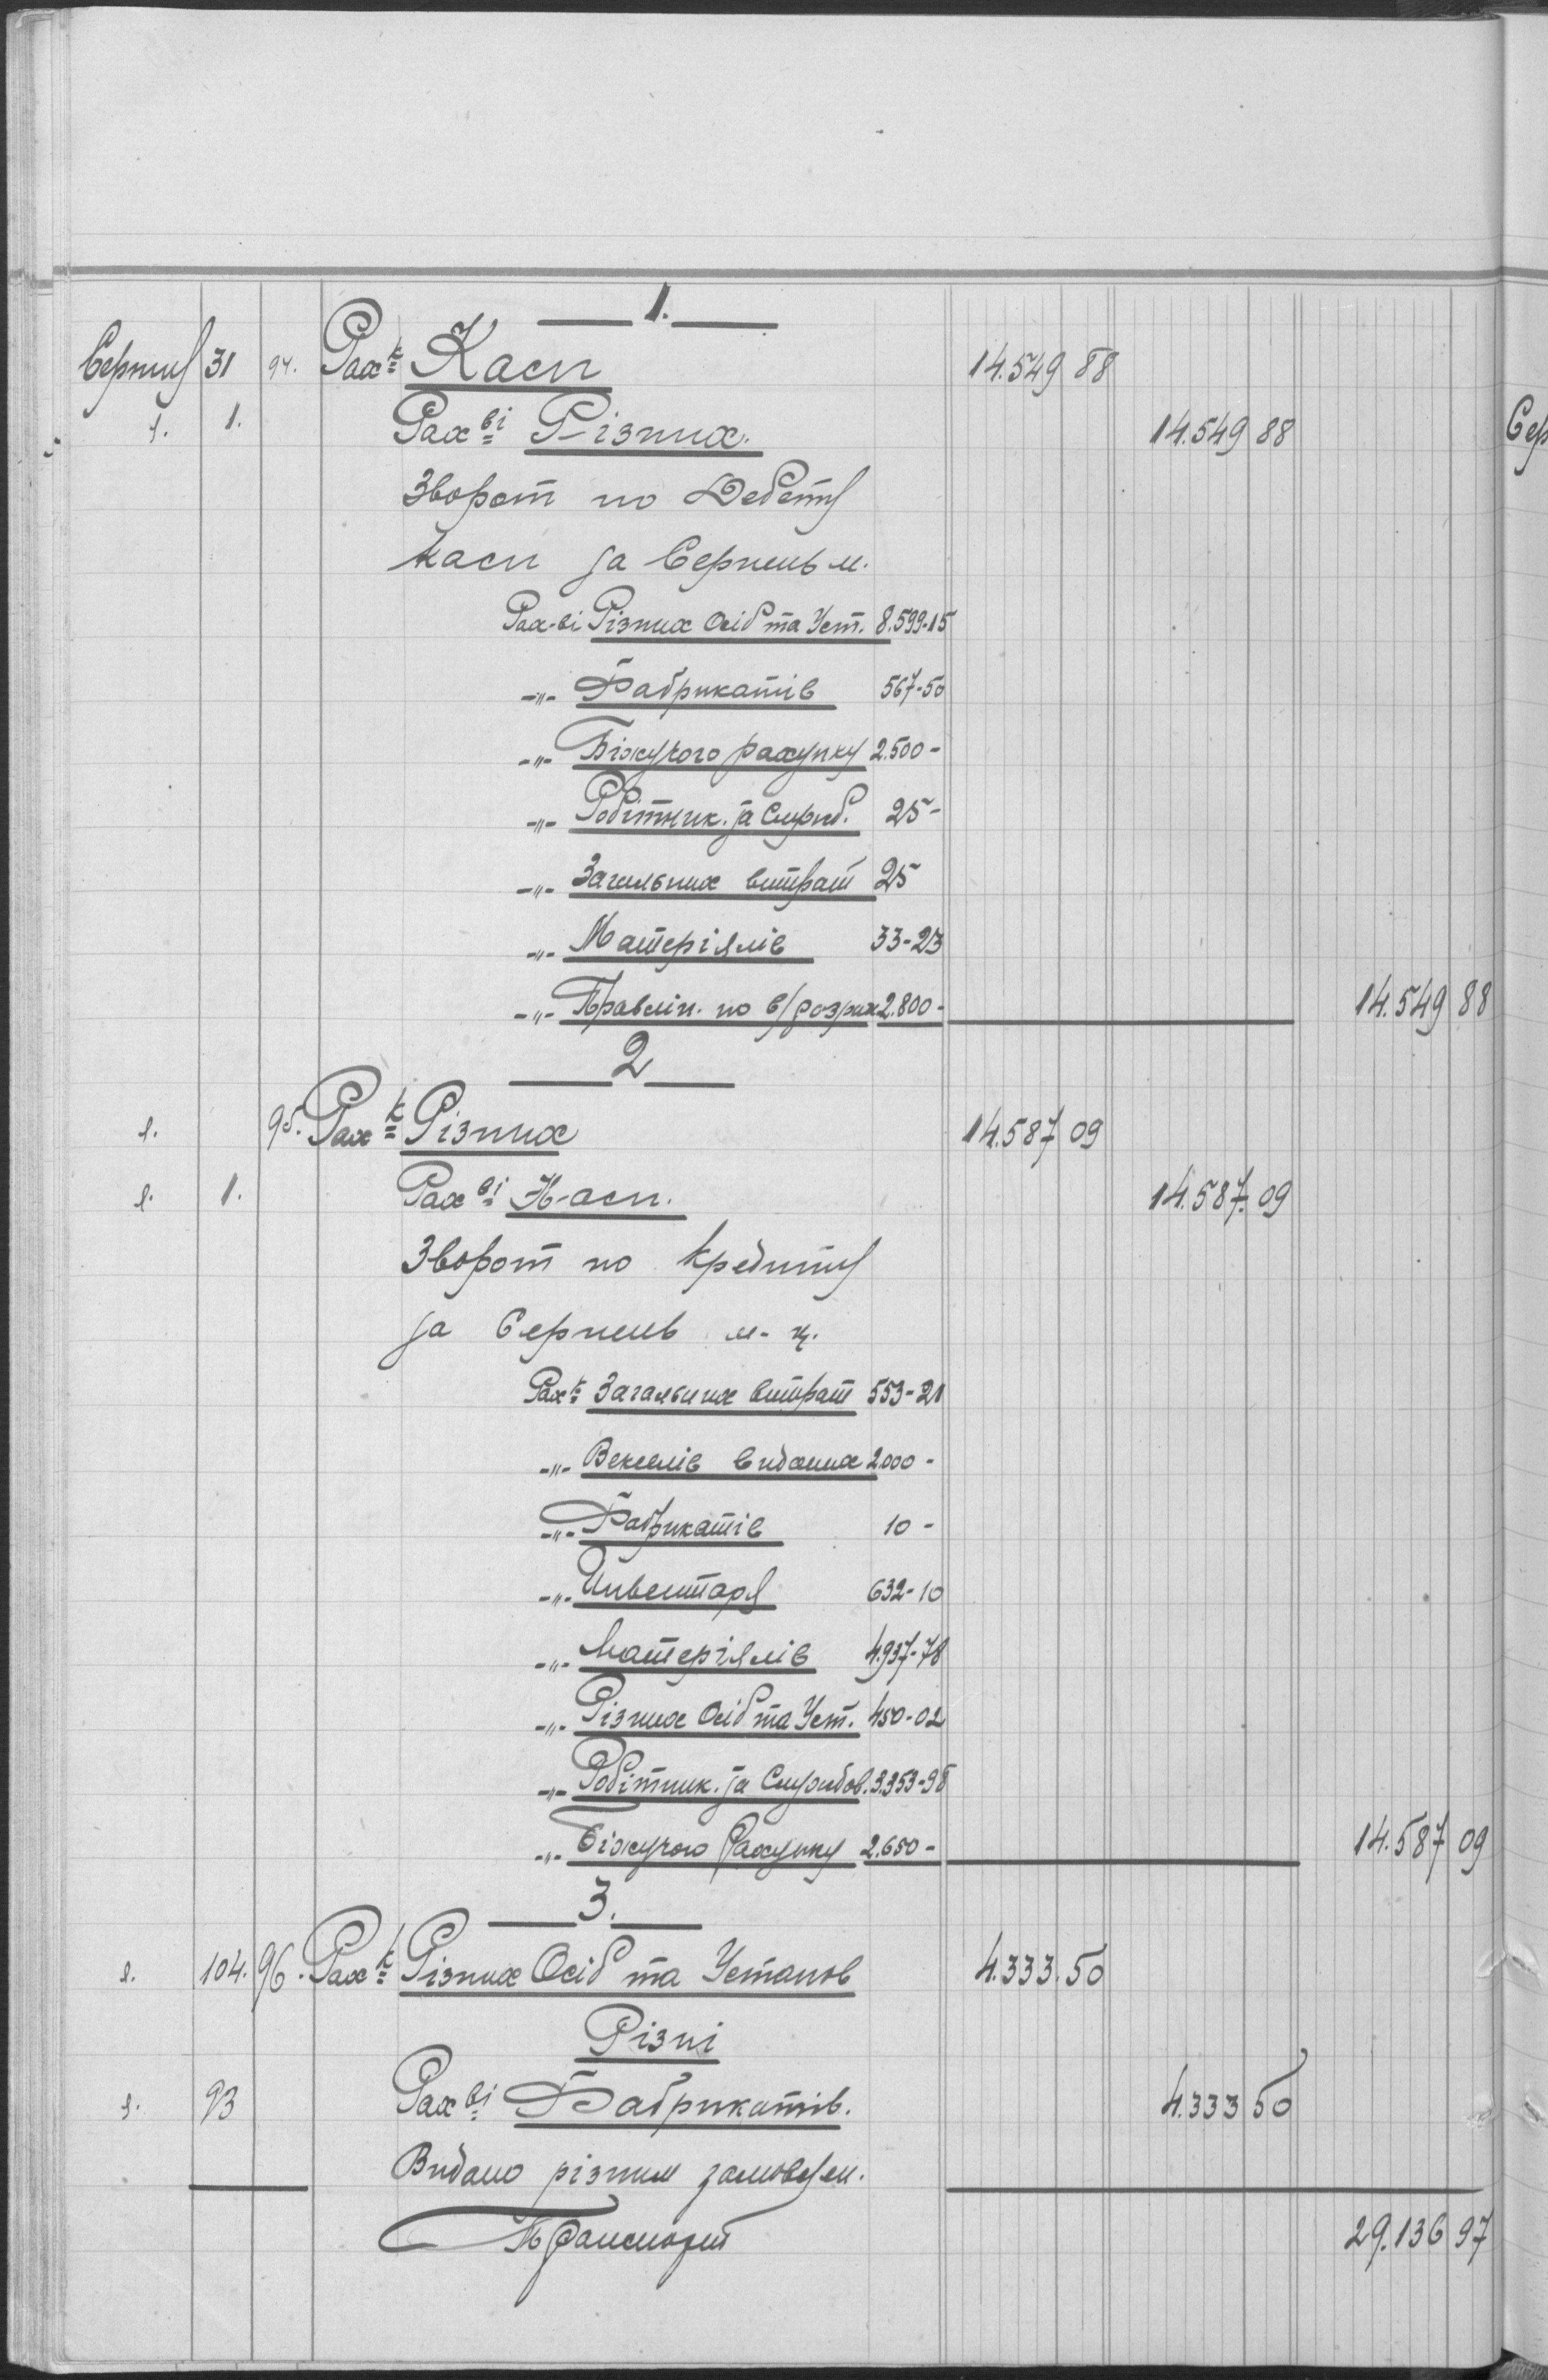 1.
Серпня 31 94. Рах-к Каси 14.549 88
1. 1. Рах-ві Різних. 14.549 88
Зворот по Дебету
Каси за Серпень м.
Рах-ві Різних Осіб та Уст. 8.599-15
-„- Фабрикатів 567-50
-„- Біжучого рахунку 2.500-
-„- Робітник. за 25-
-„- Загальних витрат 25
-„- Матеріялів 33-23
-„- Правлін. по в/розрах 2.800- 14.549 88
2
95. Рах-к Різних 14.587 09
1. Рах-ві Каси. 14.587. 09
Зворот по Кредиту
за Серпень м-ц.
Рах-к Загальних витрат 553-21
-„- Векселів виданих 2.000-
-„- Фабрикатів 10-
-„- Инвентаря 632-10
-„- Матеріялів 4.937-78
-„- Різних Осіб та Уст. 450-02
-„- Робітник. за 3.353-98
-„- Біжучого Рахунку 2.650- 14.587 09
3.
104. 96. Рах-к Різних Осіб та Установ 4.333.50
Різні
93 Рах-ві Фабрикатів. 4.333 50
Видано різним замовцям.
Транспорт 29.136 97
Сер